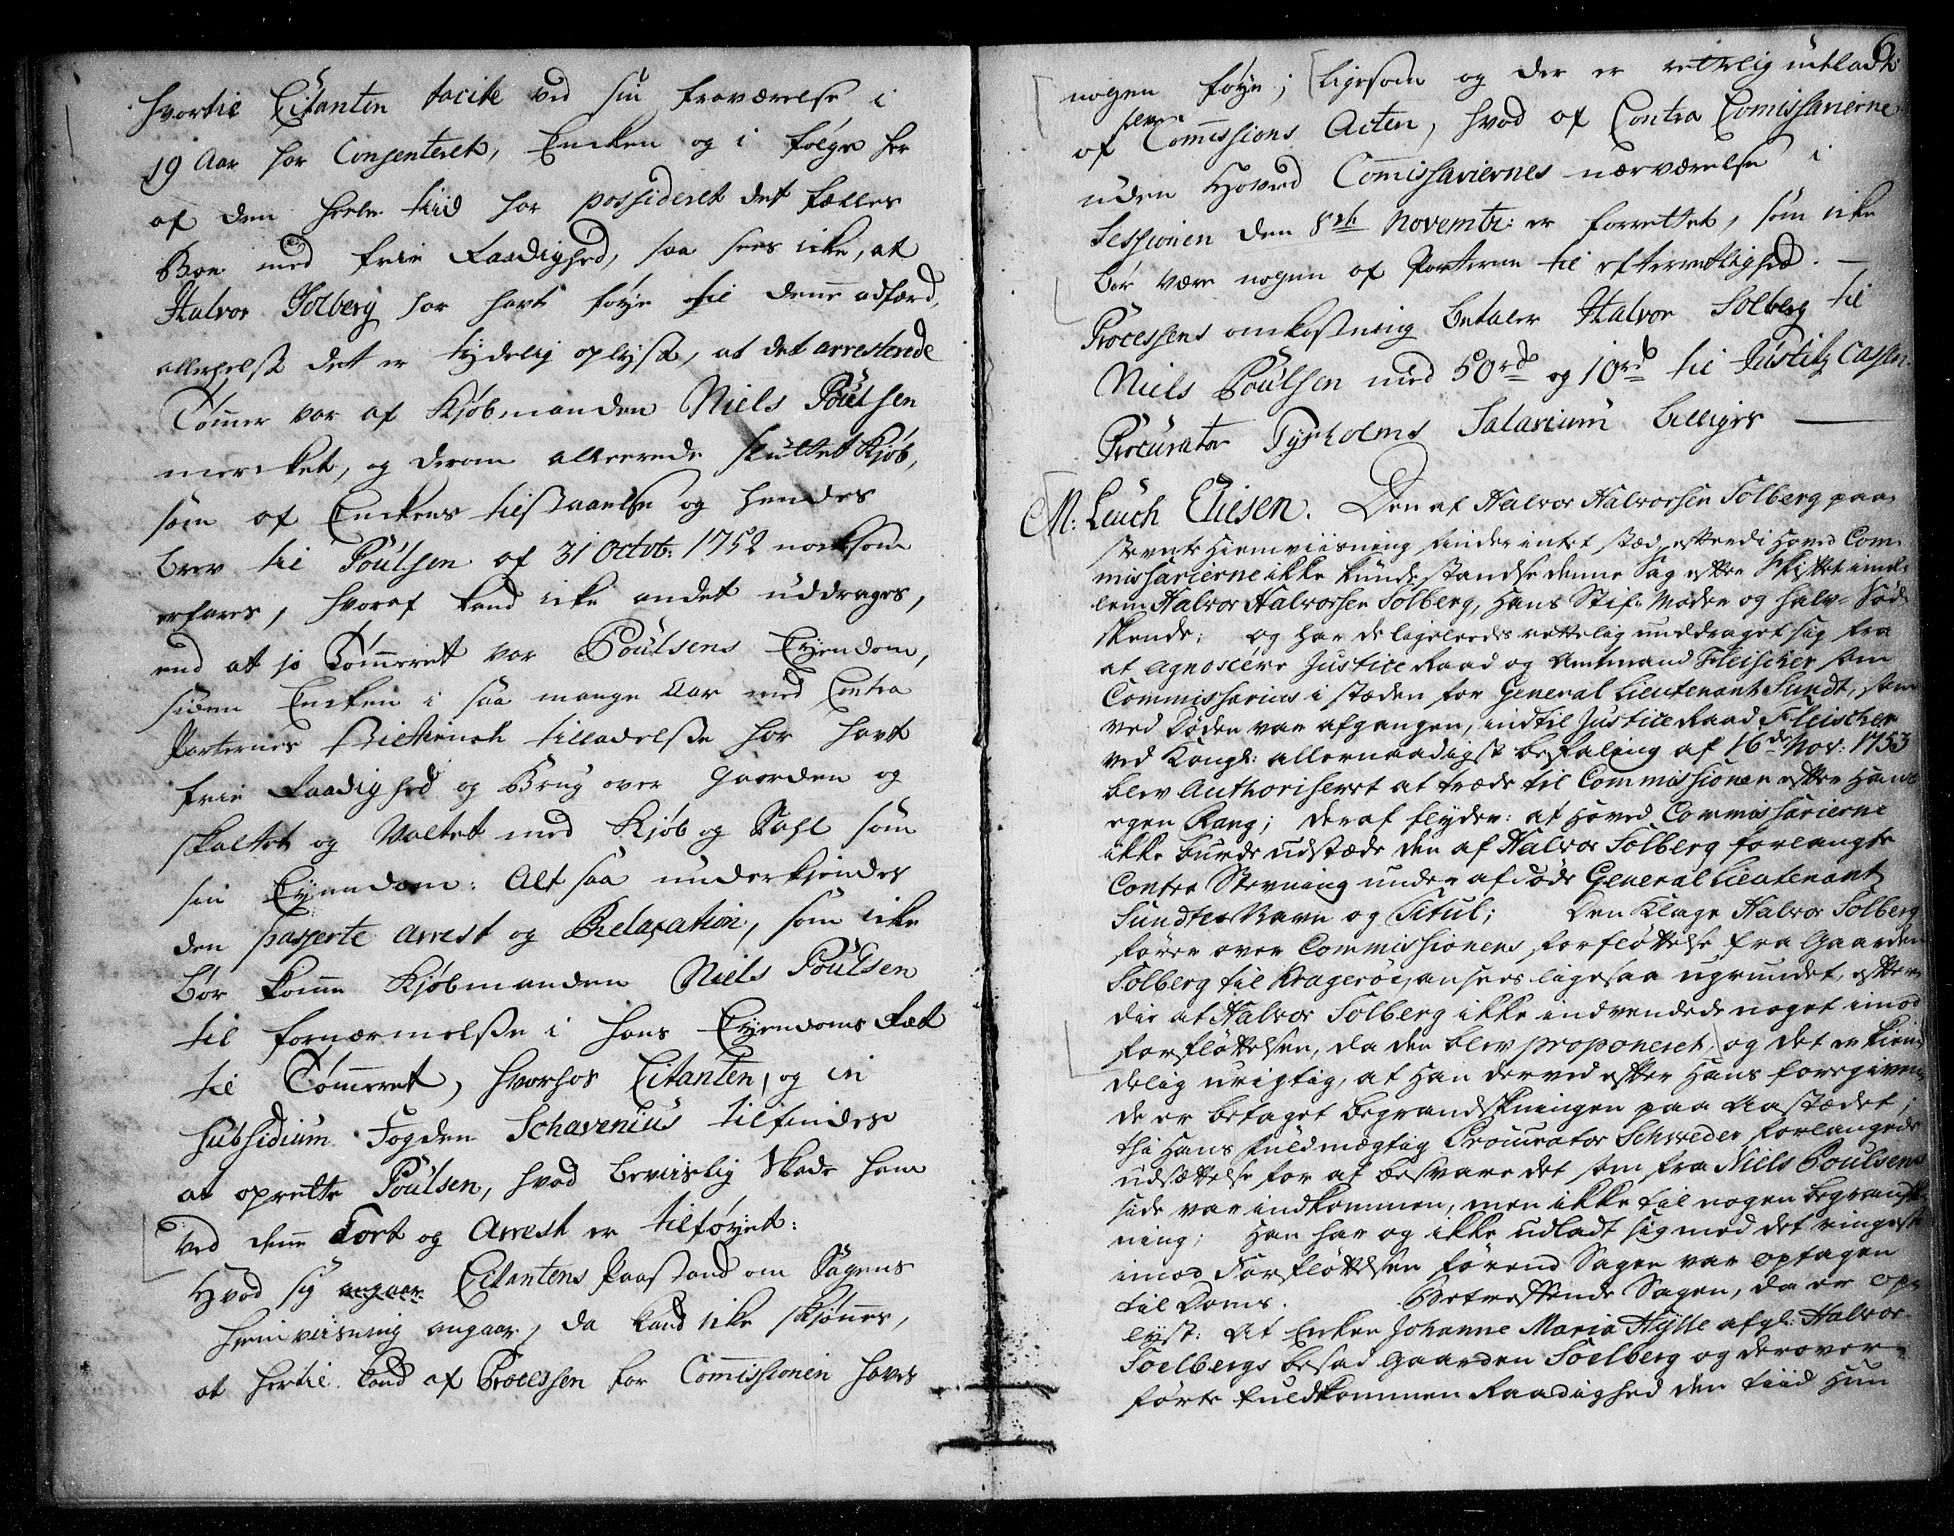 hvortil Citanten tacite ved sin fraværelse i
19 Aar har Consenteret, Encken og i følge her
af den heele tiid har possideret det fælles
Boe med frie Raadighed, saa sees icke, at
Halvor Solberg har havt føye til denne adfærd,
allerhelst det er tydelig oplyst, at det arresterede
Tømmer var af Kjøbmanden Niels Poulsen
mercket, og derom allereede sluttet Kjøb,
som af Enckens tilstaaelse og hendes
brev til Poulsen af 31 Octobr: 1752 noksom
erfares, hvoraf kand icke andet uddrages,
end at jo Tømmeret var Poulsens Eyendom,
siden Encken i saa mange Aar med Contra
Parternes tilladelse har havt
frie Raadighed og Brug over Gaarden og
skaltet og Valtet med Kjøb og Sahl som
sin Eyendom: Alt saa underkiendes
den passerte Arrest og Relaxation, som icke
bør komme Kjøbmanden Niels Poulsen
til fornærmelse i hans Eyendoms Ræt
til Tømmeret, hvorfor Citanten, og in
subsidium Fogden Schavenius tilfindes
at oprette Poulsen, hvad beviislig skade ham
ved denne Tort og Arrest er tilføyet:
Hvad sig angaar Citantens Paastand om Sagens
hiemviisning angaar, da kand icke skjønnes,
at hertil Land af Processen for Commissionen haves
6
nogen føye; ligesom og der er rettelig udladt
af Commissions Acten, hvad af Contra Commissarierne
uden Hoved Commissariernes nærværelse i
Sessionen den 8de Novembr: er forrettet, som icke
bør være nogen af Parterne til efterretlighed. —
Processens omkostning betaler Halvor Solberg til
Niels Poulsen med 50 rd og 10 rd til Justitz Cassen.
Procurator Tyrholms Salarium billiges —
M: Leuch Eliesen. Den af Halvor Halvorsen Solberg paa-
stevnte Hiemviisning finder intet stæd, efterdi Hoved Com-
missarierne ikke kunde standse denne Sag efter Skiftet imel-
lem Halvor Halvorsen Solberg, Hans Stif-Moder og halv-Sød-
skende; og har de ligeleedes rettelig unddraget sig fra
at agnoscere Justice Raad og Amtmand Fleischer som
Commissarius i stæden for General Lieutenant Sundt, som
ved Døden var afgangen, indtil Justice Raad Fleischer
ved Kongl: allernaadigst befaling af 16de Nov: 1753
blev Authoriseret at træde til Commissionen efter Hans
egen Rang; deraf flyder: at Hoved Commissarierne
ikke burde udstæde den af Halvor Solberg forlangte
Contra Stevning under afdøde General Lieutenant
Sundtes Navn og Titul; Den Klage Halvor Solberg
fører over Commissionens forfløttelse fra Gaarden
Solberg til Kragerøe, ansees ligesaa ugrundet, efter-
die at Halvor Solberg ikke indvendede noget imod
forfløttelsen, da den blev proponeret, og det er kien-
delig urigtig, at Han derved efter Hans foregiven-
de er betaget begrandskningen paa Aastædet;
thi Hans fuldmægtig Procurator Schweder forlangede
udsættelse for at besvare det som fra Niels Poulsens
side var indkommen, men ikke til nogen begransk-
ning; Han har og ikke udladt sig med det ringeste
imod Forfløttelsen førend Sagen var optagen
til Doms. Betreffende Sagen, da er op-
lyst: At Enken Johanne Maria Hylle afgl: Halvor
Soelbergs besad Gaarden Soelberg og derover-
førte fuldkommen Raadighed den tiid Hun